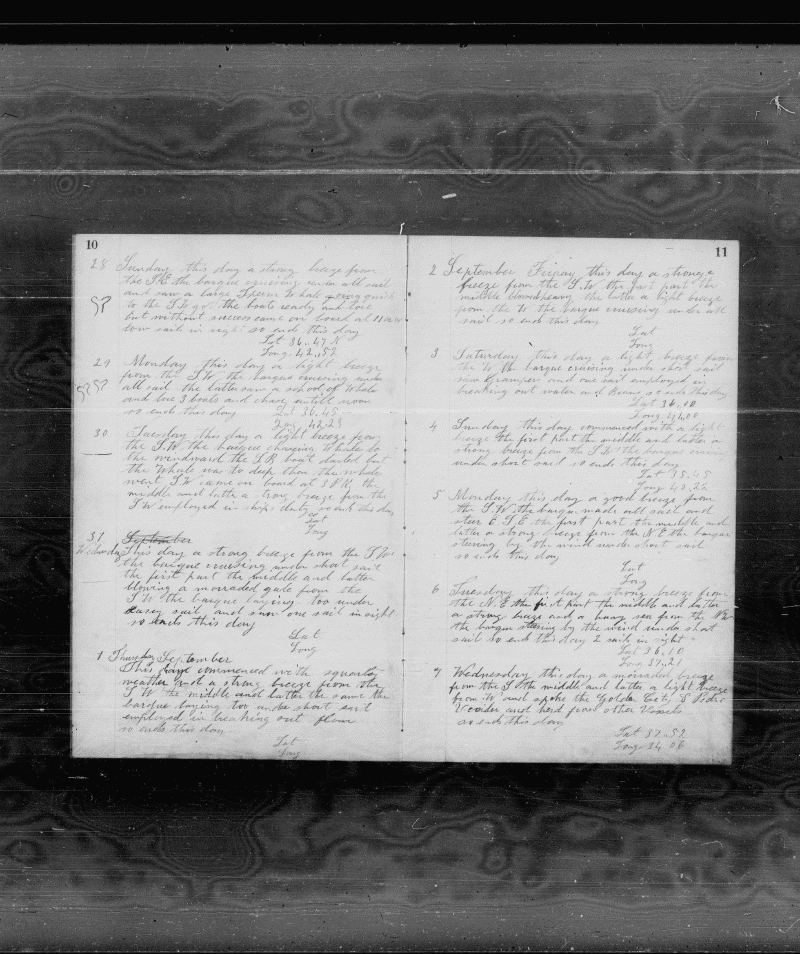 10
28 Sunday this day a strong breeze from
the S.E. the barque cruising under all sail
and saw a large Sperm Whale going quick
to the S.W. got the boats ready and
but without success came on board at 11 a.m
tow sails in sight so ends this day
Lat 36..47 N
Long 42..52
29 Monday this day a light breeze
from the S.W. the barque cruising under
all sail the latter saw a school of Whale
and low 3 boats and chase untill noon
so ends this day Lat 36.45
Long 42.23
30 Tuesday this day a light breeze from
the S.W. the barque chasing Whale to
the windward the S.B. boat darted but
the Whale was to deep then the whale
went S.W. came on board at 3 P.M. the
middle and latter a trong breeze from the
S.W employed in ships duty so ends this day
Lat
Long
31 September
Wednesday This day a strong breeze from the S.W.
the barque cruising under short sail
the first part the middle and latter
blowing a morraded gale from the
S.W. the barque laying too under
easey sail and saw one sail in sight
so ends this day
Lat
Long
1 Thursday September
This day commenced with squarley
weather and a strong breeze from the
S.W. the middle and latter the same the
barque laying too under short sail
employed in breaking out flour
so ends this day
Lat
Long
11
2 September Friday this day a strong
breeze from the S.W. the first part the
middle blowed heavy the latter a light breeze
from the the barque cruising under all
sail so ends this day
Lat
Long
3 Saturday this day a light breeze from
the W. the barque cruising under short sail
saw Gramper and one sail employed in
breaking out water and Beans so ends this day
Lat 36.10
Long 41.00
4 Sunday this day commenced with a light
breeze the first part the middle and latter a
strong breeze from the S.W. the barque cruising
under short sail so ends this day
Lat 35.45
Long 40.22
5 Monday this day a good breeze from
the S.W. the barque made all sail and
steer E.S.E. the first part the middle and
latter a strong breeze from the N.E. the barque
steering by the wind under short sail
so ends this day
Lat
Long
6 Tuesday this day a strong breeze from
the N.E. the first part the middle and latter
a strong breeze and a heavy sea from the N.E
the barque steering by the wind under short
sail so ends this day 2 sails in sight
Lat 36.10
Long 37.21
7 Wednesday this day a morraded breeze
from the S. the middle and latter a light breeze
from W. and spoke the Golden City S. Pedro
and herd from other Vessels
so ends this day
Lat 37..52
Long 34 06